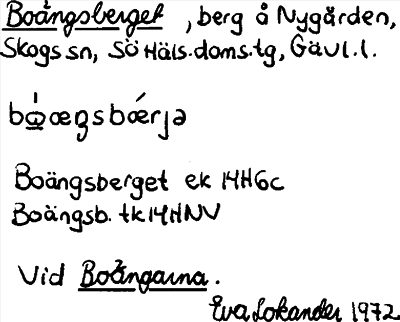 Boängsberget, berg å Nygården,
Skogs sn, Sö Häls.doms.tg, Gävl.l.
bo̱̍ægsbǽrjə
Boängsberget ek 14H6c
Boängsb. tk 14HNV
Vid Boängarna.
Eva Lokander 1972